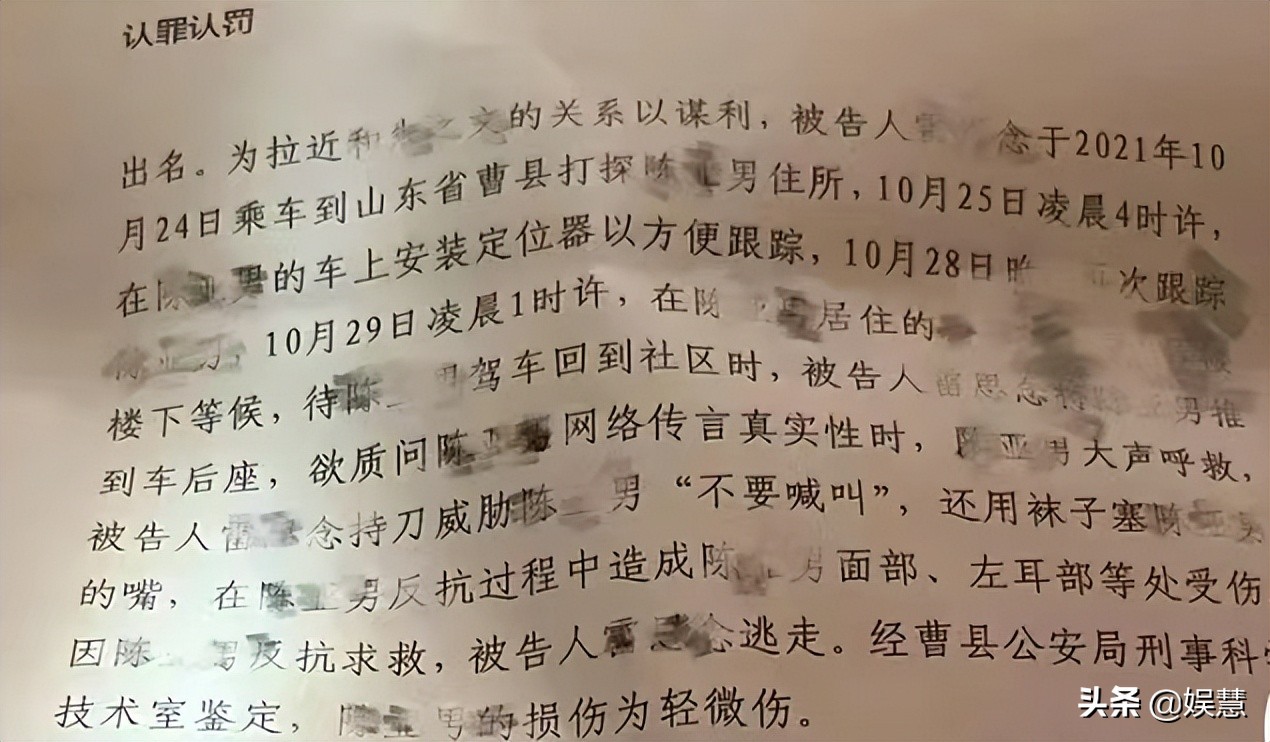 认罪认罚
出名。为拉近和 之文的关系以谋利，被告人雷 念于2021年10
月24日乘车到山东省曹县打探陈 男住所，10月25日凌晨4时许，
在陈亚男的车上安装定位器以方便跟踪，10月28日晚 次跟踪
10月29日凌晨1时许，在陈 居住的
楼下等候，待陈 男驾车回到社区时，被告人雷思念将陈 男推
到车后座，欲质问陈亚男网络传言真实性时，陈亚男大声呼救，
被告人雷 念持刀威胁陈 男“不要喊叫”，还用袜子塞陈亚男
的嘴，在陈亚男反抗过程中造成陈 男面部、左耳部等处受伤
因陈 男反抗求救，被告人雷思念逃走。经曹县公安局刑事科
技术室鉴定，陈亚男的损伤为轻微伤。
头条 @娱慧